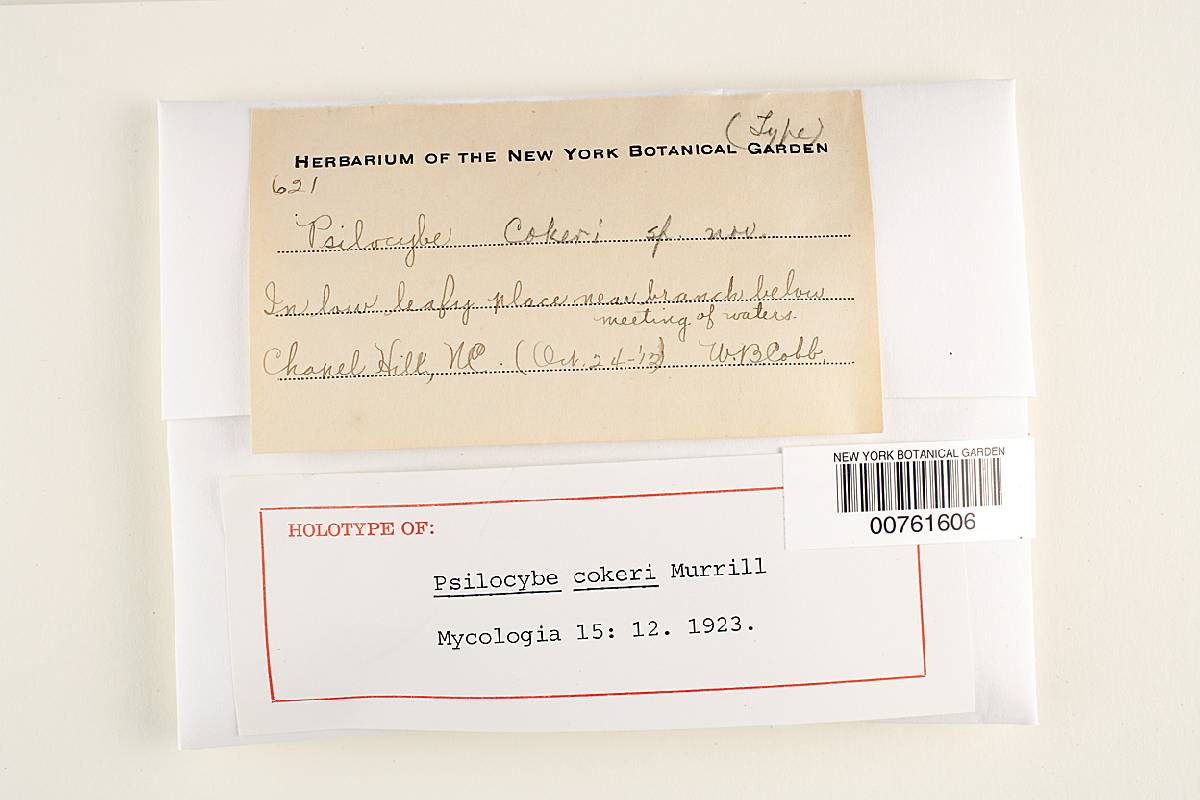 (Type)
HERBARIUM OF THE NEW YORK BOTANICAL GARDEN
621
Psilocybe Cokeri sp. nov.
In low leafy place near branch below
meeting of waters.
Chapel Hill, NC. (Oct. 24-'12) W.B Cobb.
NEW YORK BOTANICAL GARDEN
00761606
HOLOTYPE OF:
Psilocybe cokeri Murrill
Mycologia 15: 12. 1923.